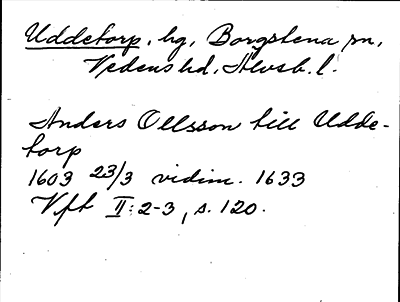 Uddetorp, hg, Borgstena sn,
Vedens hd, Älvsb. l.
Anders Ollsson till Udde-
torp
1603 23/3 vidim. 1633
Vft II: 2-3, s. 120.